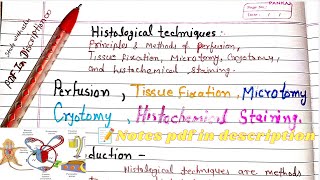 PANKAJ
Page No.
Date
Histological techniques :-
Principles & Methods of perfusion,
Tissue Fixation, Microtomy, Cryotomy,
and histochemical staining.
PDF In Discription
Perfusion, Tissue Fixation, Microtomy
Cryotomy, Histochemical Staining.
Notes pdf in description
duction -
Histological techniques are methods